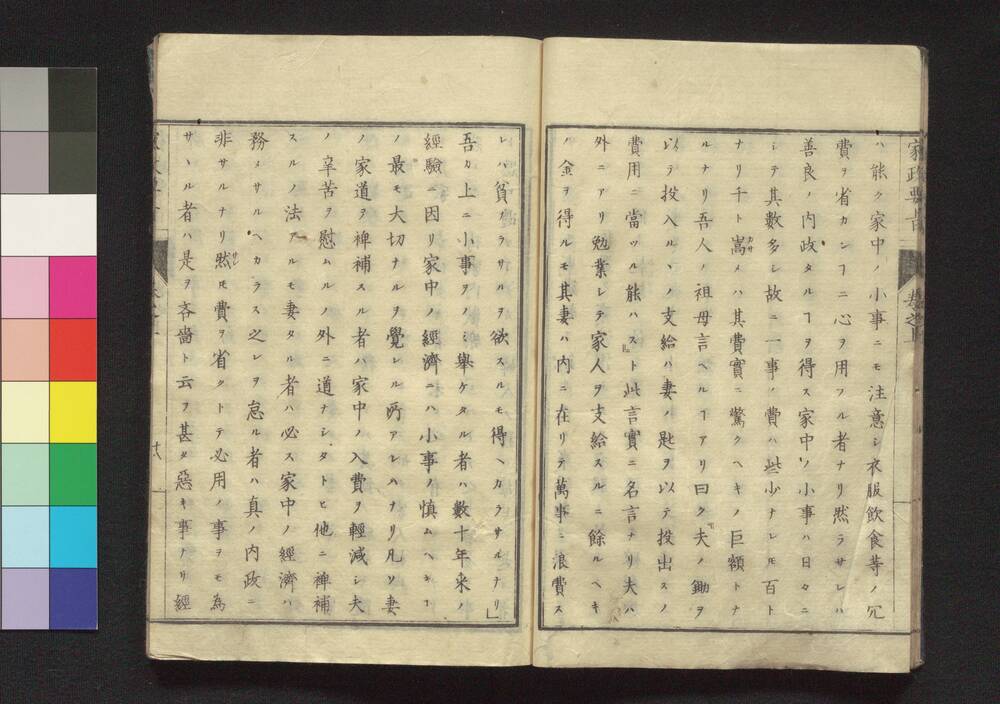 家政要旨
ハ能ク家中ノ小事ニモ注意シ衣服飲食等ノ冗
費ヲ省カンヿニ心ヲ用フル者ナリ然ラサレハ
善良ノ内政タルヿヲ得ス家中ノ小事ハ日々ニ
シテ其數多シ故ニ一事ノ費ハ些少ナレモ百ト
ナリ千ト嵩カサメハ其費實ニ驚クヘキノ巨額トナ
ルナリ吾人ノ祖母言ヘルヿアリ曰ク『夫ノ鋤ヲ
以テ投入ルヽノ支給ハ妻ノ匙ヲ以テ投出スノ
費用ニ當ツル能ハス』ト此言實ニ名言ナリ夫ハ
外ニアリ勉業シテ家人ヲ支給スルニ餘ルヘキ
ノ金ヲ得ルモ其妻ハ内ニ在リテ萬事ニ浪費ス
レハ貧カラサルヲ欲スルモ得ヘカラサルナリ」
吾カ上ニ小事ヲノミ舉ケタル者ハ數十年来ノ
經驗ニ因リ家中ノ經濟ニハ小事ノ慎ムヘキヿ
ノ最モ大切ナルヲ覺レル所アレハナリ凡ソ妻
ノ家道ヲ裨補スル者ハ家中ノ入費ヲ輕減シ夫
ノ辛苦ヲ慰ムルノ外ニ道ナシタトヒ他ニ裨補
スルノ法アルモ妻タル者ハ必ス家中ノ經濟ハ
務メサルヘカラス之レヲ怠ル者ハ真ノ内政ニ
非サルナリ然サレ𪜈費ヲ省クトテ必用ノ事ヲモ為
サヽル者ハ是ヲ吝嗇ト云ヲ甚タ惡キ事ナリ經